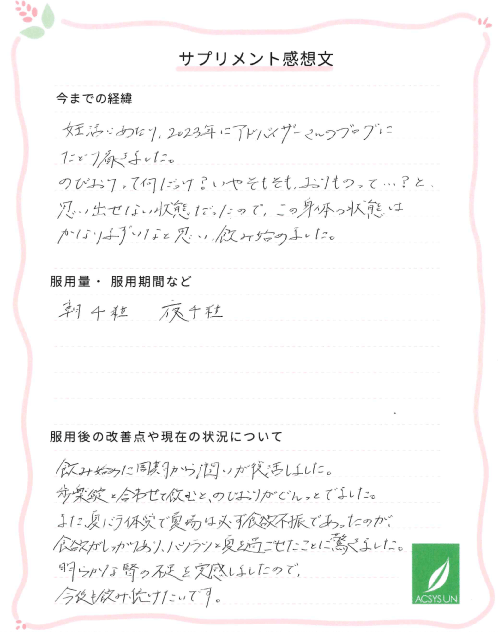 サプリメント感想文
今までの経緯
妊活にあたり、2023年にアドバイザーさんのブログに
たどり着きました。
のびおりって何だっけ？いやそもそも、おりものって…？と、
思い出せない状態だったので、この身体の状態は
かなりまずいなと思い、飲み始めました。
服用量・ 服用期間など
朝 4 粒 夜 4 粒
服用後の改善点や現在の状況について
飲み始めに周期から潤いが復活しました。
歩楽錠と合わせて飲むと、のびおりがでんっとでました。
また、夏バテ体質で夏場は必ず食欲不振であったのが、
食欲がしっかりあり、バリバリと夏を過ごせたことに驚きました。
明らかな腎の不足を実感しましたので、
今後も飲み続けたいです。
ACSYS LIN